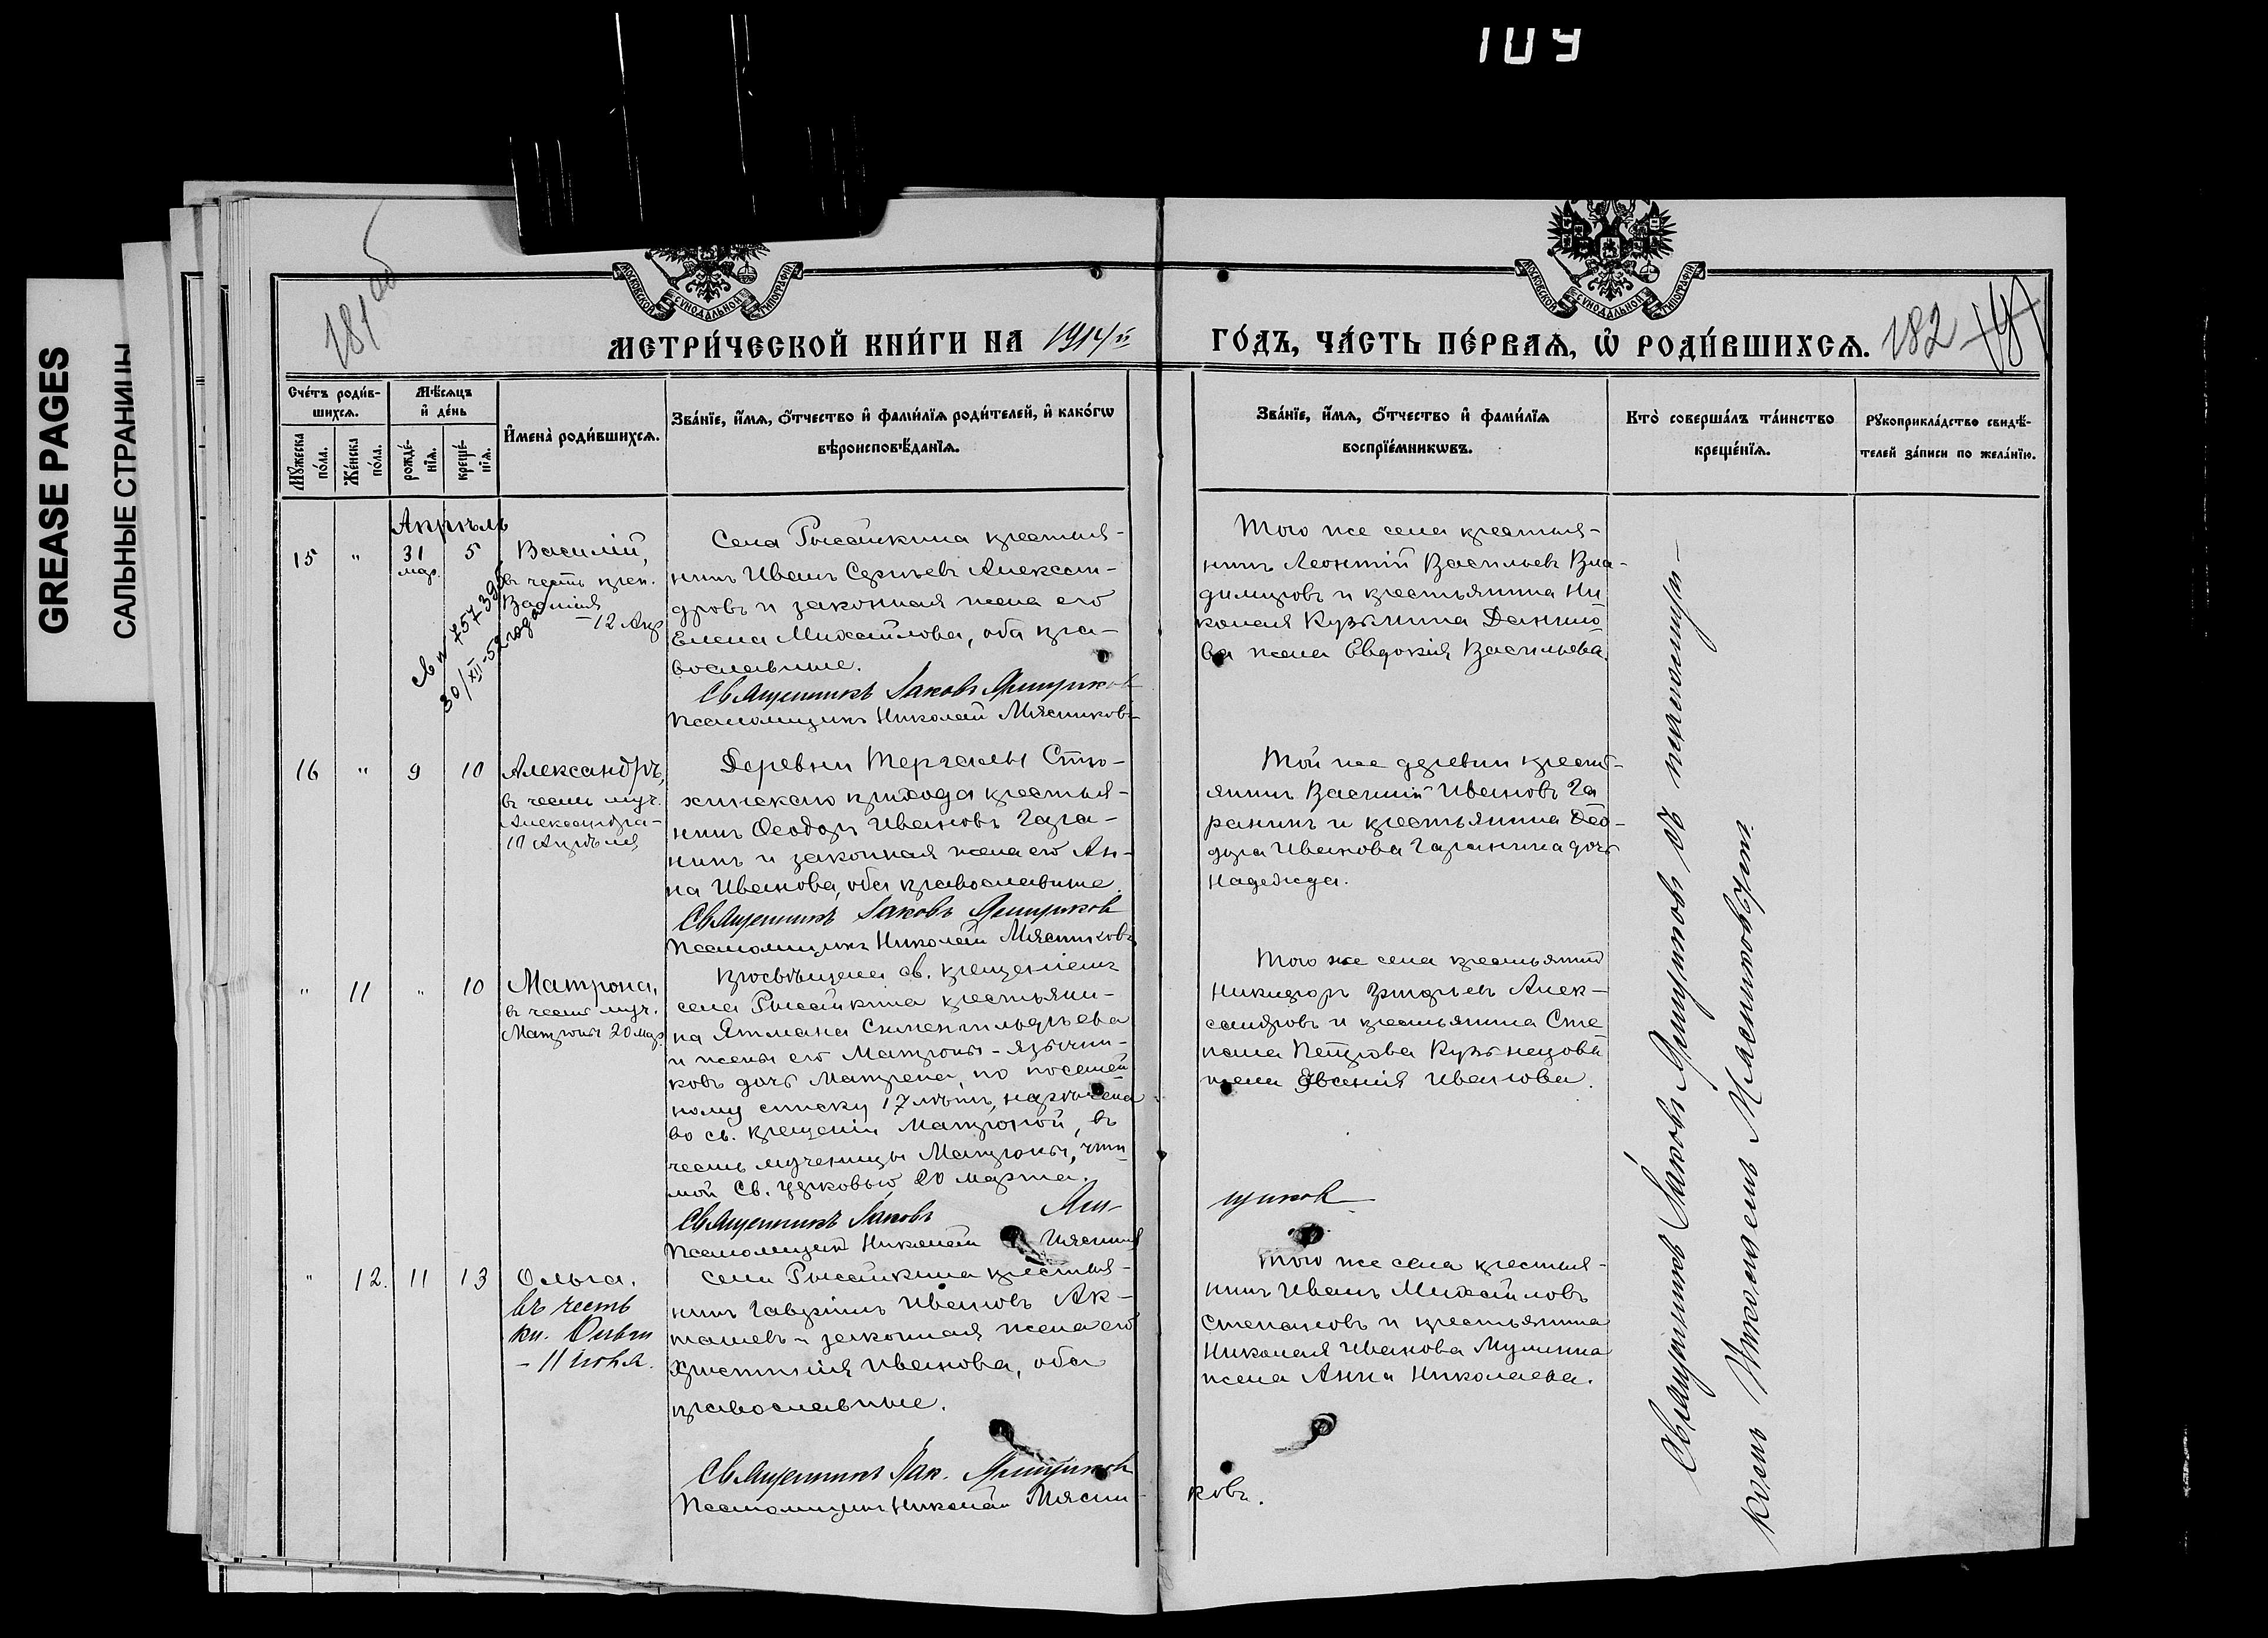 109
GREASE PAGES
САЛЬНЫЕ СТРАНИЦЫ
181 об
182
МОСКОВСКОЙ СУНОДАЛЬНОЙ ТИПОГРАФІИ
МОСКОВСКОЙ СУНОДАЛЬНОЙ ТИПОГРАФІИ
МЕТРИ́ЧЕСКОЙ КНИ́ГИ НА 1914й ГО́ДЪ, ЧА́СТЬ ПЕ́РВАѦ, Ѽ РОДИ́ВШИХСѦ.
Сче́тъ роди́в-
шихсѧ.
Мꙋ́жеска по́ла.
Же́нска по́ла.
Мѣ́сѧцъ
и҆ де́нь
рожде́-
нїѧ.
креще́-
нїѧ.
И҆мена̀ роди́вшихсѧ.
Зва́нїе, и҆́мѧ, ѻ҆́тчество и҆ фами́лїѧ роди́телей, и҆ како́гѡ
вѣроисповѣ́данїѧ.
Зва́нїе, и҆́мѧ, ѻ҆́тчество и҆ фами́лїѧ
воспрїе́мникѡвъ.
Кто̀ соверша́лъ та́инство
креще́нїѧ.
Рꙋкоприкла́дство свидѣ́-
телей за́писи по жела́нїю.
Апрѣль
15 " 31 мар. 5
Василій,
въ честь преп.
Василія
– 12 Апр
30/XII-52 года
Села Рысайкина крестья-
нинъ Иванъ Сергѣевъ Алексан-
дровъ и законная жена его
Елена Михайлова, оба пра-
вославные.
Священникъ Іаковъ Ямщиков
Псаломщикъ Николай Мясниковъ
Того же села крестья-
нинъ Леонтій Васильевъ Вла-
димировъ и крестьянина Ни
колая Кузьмина Данило
ва жена Евдокія Васильева.
16 " 9 10
Александръ,
въ честь муч.
Александра –
10 Апрѣля
Деревни Тергалы Стю-
хинскаго прихода крестья-
нинъ Ѳеодоръ Ивановъ Гара-
нинъ и законная жена его Ан-
на Иванова, оба православные.
Священникъ Іаковъ Ямщиков
Псаломщикъ Николай Мясниковъ
Той же деревни крест-
янинъ Василій Ивановъ Га
ранинъ и крестьянина Ѳео-
дора Иванова Гаранина дочь
Надежда.
" 11 " 10
Матрона,
въ честь муч.
Матроны 20 мар.
Просвѣщена св. крещеніемъ
села Рысайкина крестьяни-
на Ятмана Сименгильдѣева
и жены его Матроны – язычни-
ковъ дочь Матрена, по посемей
ному списку 17 лѣтъ, наречена
во св. крещеніи Матроной, въ
честь мученицы Матроны, чти
мой Св. Церковью 20 марта.
Священникъ Іаковъ Ям-
щиков
Псаломщикъ Николай Мясник
Того же села крестьянинъ
Никифоръ Григорьевъ Алек-
сандровъ и крестьянина Сте
пана Петрова Кузнецова
жена Евѳенія Иванова.
" 12. 11 13
Ольга,
въ честь
кн. Ольги
– 11 іюля.
Села Рысайкина крестья-
нинъ Гавріилъ Ивановъ Ак-
ташевъ и законная жена его
Христинія Иванова, оба
православные.
Священникъ Іак. Ямщиков
Псаломщикъ Николай Мясни-
ковъ.
Того же села крестья-
нинъ Иванъ Михайловъ
Степановъ и крестьянина
Николая Иванова Мулина
жена Анна Николаева.
Священникъ Іаковъ Ямщиковъ съ псаломщи-
комъ Николаемъ Мясниковымъ.